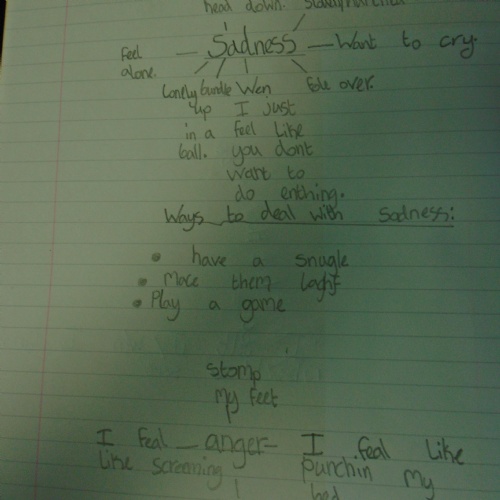 head down.
Sadness — Want to cry.
Feel
alone.
Lonely bundle Wen
fole over.
up I Just
in a feel Like
ball. you dont
want to
do enthing.
Ways to deal with sadness:
• have a snugle
• Mace them laghf
• Play a game
stomp
My feet
I feal anger I feal Like
Like screming punchin My